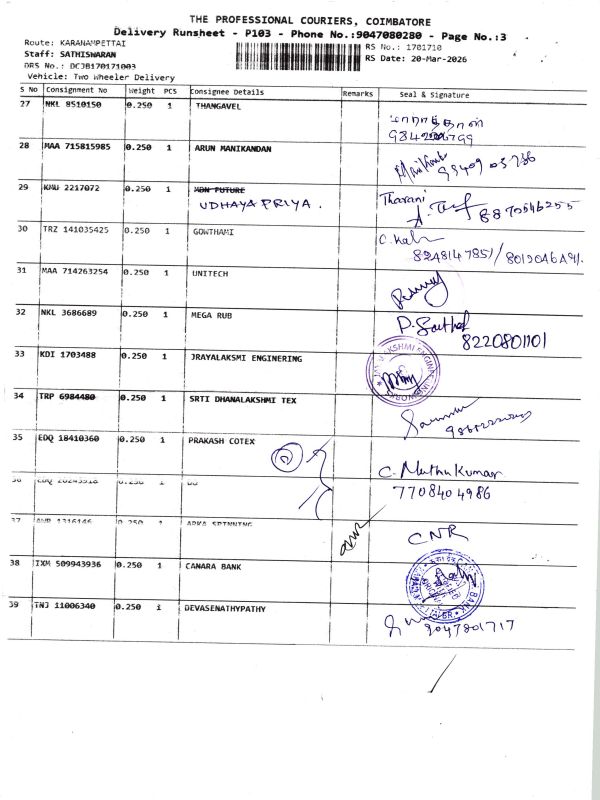 THE PROFESSIONAL COURIERS, COIMBATORE
Delivery Runsheet - P103 - Phone No.:9047080280 - Page No.:3
Route: KARANAMPETTAI
RS No.: 1701710
Staff: SATHISWARAN
RS Date: 20-Mar-2026
DRS No.: DCJB170171003
Vehicle: Two Wheeler Delivery
S No Consignment No Weight PCS Consignee Details Remarks Seal & Signature
27 NKL 8510150 0.250 1 THANGAVEL
28 MAA 715815985 0.250 1 ARUN MANIKANDAN
29 KMU 2217072 0.250 1 MDN FUTURE Tharani
UDHAYA PRIYA . 8870546255
30 TRZ 141035425 0.250 1 GOWTHAMI
31 MAA 714263254 0.250 1 UNITECH
32 NKL 3686689 0.250 1 MEGA RUB
8220801101
33 KDI 1703488 0.250 1 JRAYALAKSMI ENGINERING
34 TRP 6984480 0.250 1 SRTI DHANALAKSHMI TEX
35 EDQ 18410360 0.250 1 PRAKASH COTEX
C. Muthu Kumar
36 0.250 1 DO 7708404986
37 1316146 0.250 1 ARKA SPINNING
CNR
38 IXM 509943936 0.250 1 CANARA BANK
39 TNJ 11006340 0.250 1 DEVASENATHYPATHY
9047801717